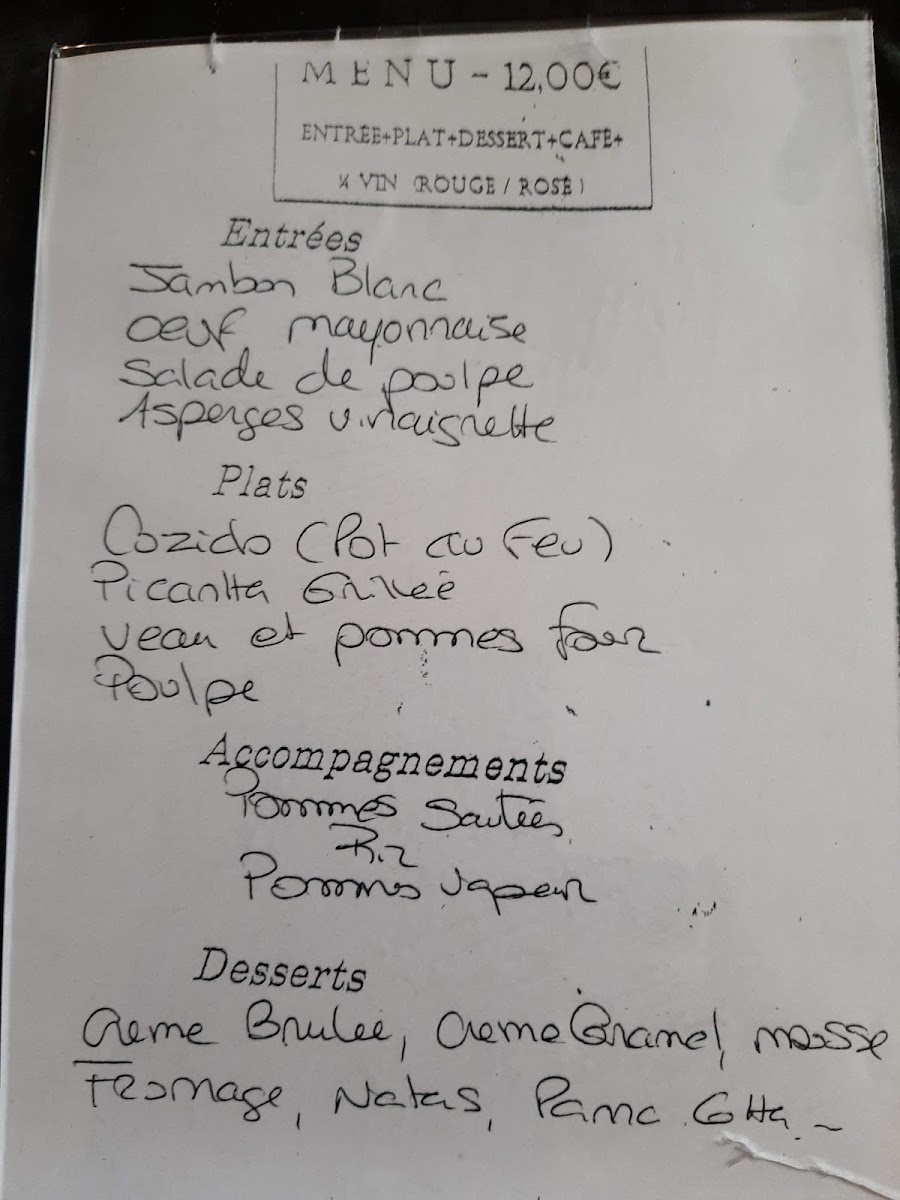 MENU - 12,00€
ENTRÉE+PLAT+DESSERT+CAFÉ+
¼ VIN (ROUGE / ROSÉ)
Entrées
Jambon Blanc
oeuf mayonnaise
Salade de poulpe
Asperges vinaigrette
Plats
Cozido (Pot au Feu)
Picanha Grillée
Veau et pommes four
Poulpe
Accompagnements
Pommes Sautées
Riz
Pommes vapeur
Desserts
Creme Brulee, Creme Caramel, mousse
Fromage, Natas, Pana Cotta